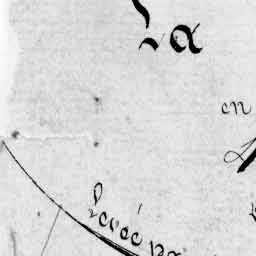 La
en
Levée pa